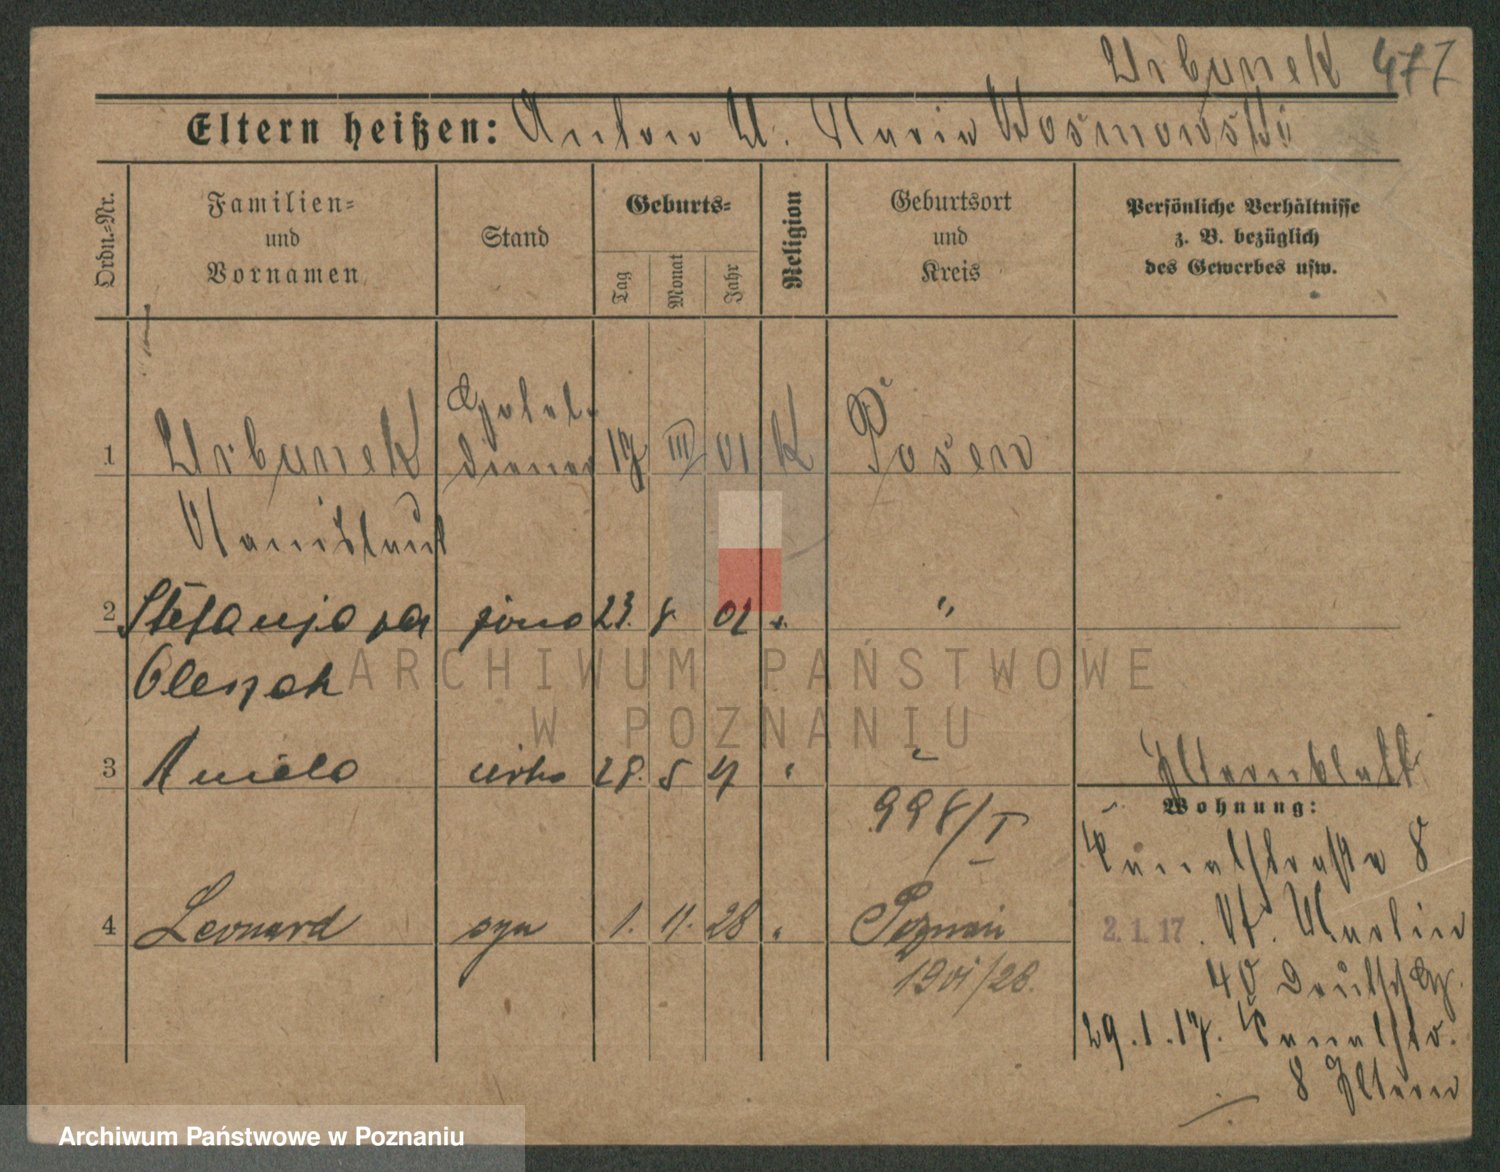 Urbanek 477
Eltern heißen: Anton U. Maria Kosmowski
Ordn.-Nr.
Familien-
und
Vornamen
Stand
Geburts-
Tag
Monat
Jahr
Religion
Geburtsort
und
Kreis
Persönliche Verhältnisse
z. B. bezüglich
des Gewerbes usw.
1 Urbanek Hotel-
diener 17 III 01 K Posen
Stanislaus
2 Stefanja żona 23. 8. 02 "
Oleszak
3 Aniela córka 28. 5 "
Elternblatt
Wohnung:
998/I
Kanalstraße 8
4 Leonard syn 1. 11. 28 " Poznań
2.1.17. St. Martin
40
1901/28.
29.1.17. Kanalstr.
8 Eltern
ARCHIWUM PAŃSTWOWE
W POZNANIU
Archiwum Państwowe w Poznaniu